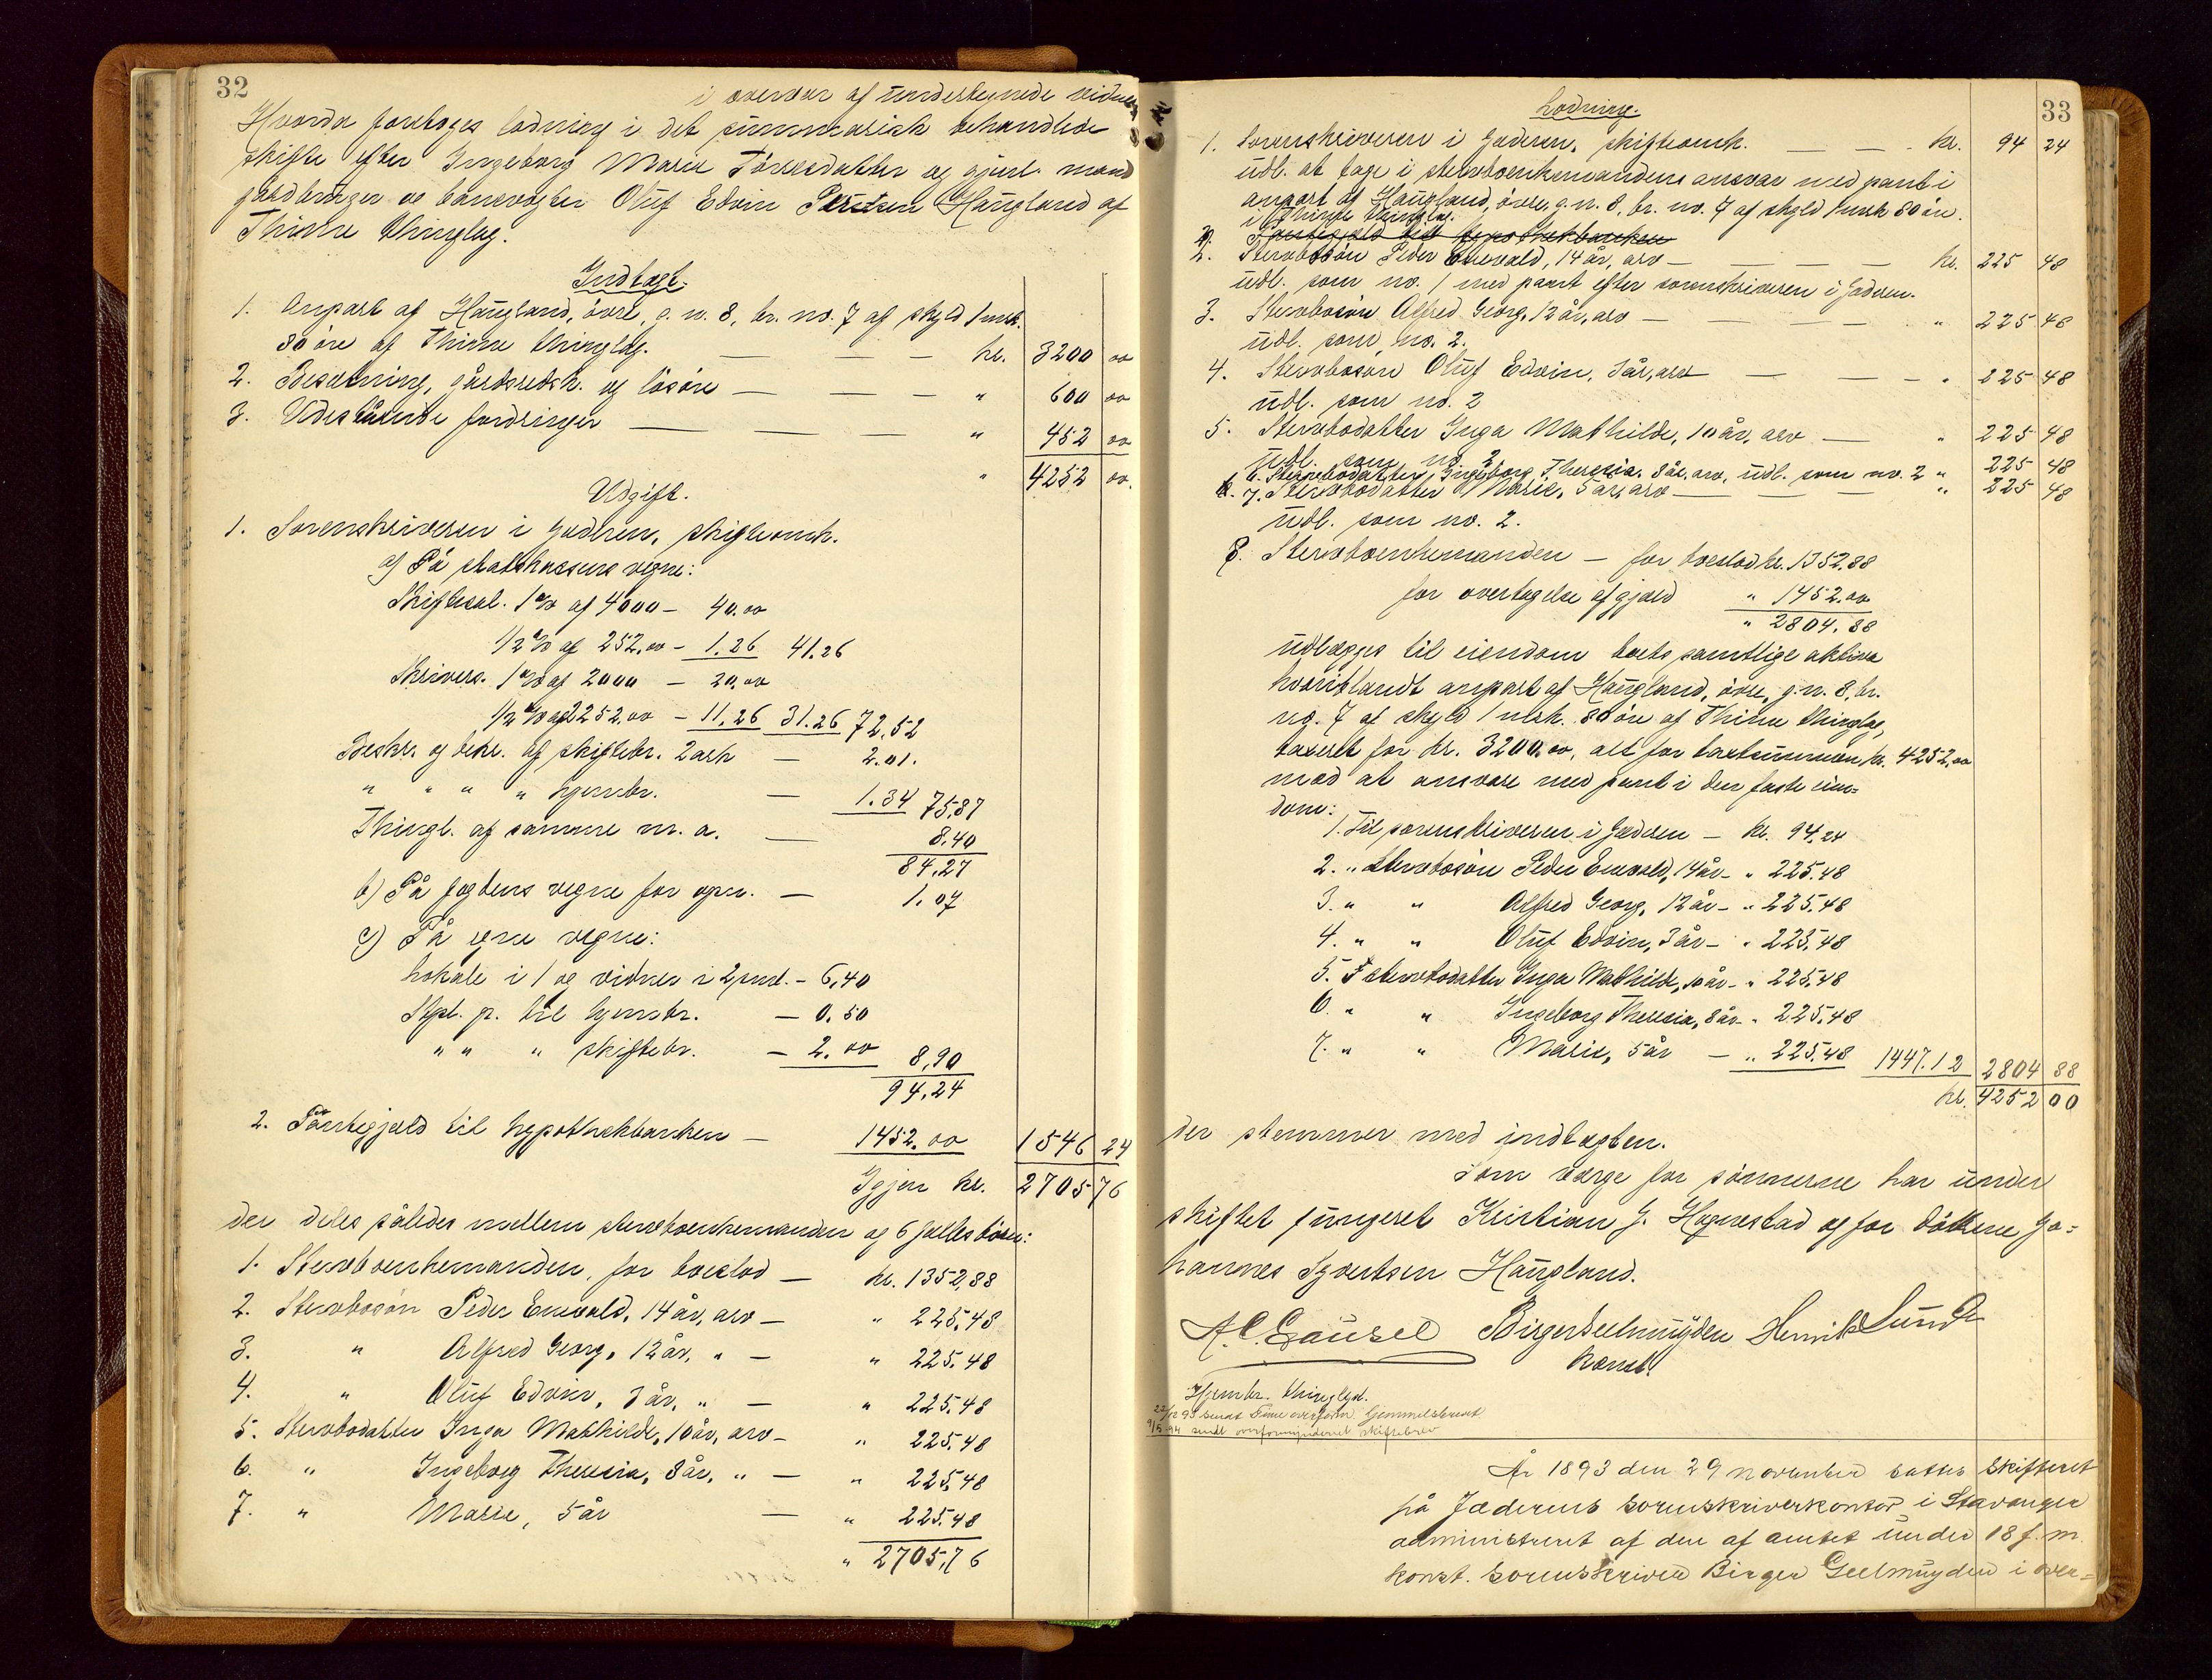 32
i overvær af undertegnede vidner
Hvorda foretoges lodning i det summarisk behandlede
skifte efter Ingeborg Marie Törresdatter og gjenl. mand
gårdbruger og banevogter Oluf Edvin Haugland af
Thime thinglag.
Indtægt.
1. Anpart af Haugland, övre, g. n. 8, br. no. 7 af skyld 1 mrk.
80 öre af Thime thinglag. — — — kr. 3200 00
2. Besætning, gårdsredsk. og lösöre — — — " 600 00
3. Udestående fordringer — — — " 452 00
" 4252 00.
Udgift.
1. Sorenskriveren i Jæderen, skifteomk.
a) På statskassens vegne:
Skiftesal. 1 % af 4000 — 40.00
1/2 % af 252.00 — 1.26 41.26
Skrivers. 1 % af 2000 — 20.00
1/2 % af 2252.00 — 11.26 31.26 72.52
Beskr. og bekr. af skiftebr. 2 ark — 2.01.
" " " " hjemsbr. — 1.34 75,87
Thingl. af samme m. a. — 8,40
84,27
b) På fogdens vegne for opn. — 1.07
c) På egne vegne:
Lokale i 1 og vidner i 2 md. — 6,40
Stpl. p. til hjemsbr. — 0.50
" " " skiftebr. — 2.00 8,90
94,24
2. Pantegjæld til hypothekbanken — 1452.00 1546 24
Igjen kr. 2705 76
der deles således mellem stervboenkemanden og 6 fællesbörn:
1. Stervboenkemanden, for boeslod — kr. 1352,88
2. Stervbosön Peder Enevald, 14 år, arv — " 225,48
3. " Alfred Georg, 12 år, " — " 225,48
4. " Oluf Edvin, 3 år, " — " 225,48
5. Stervbodatter Inga Mathilde, 10 år, arv — " 225,48
6. " Ingeborg Theresia, 8 år, " — " 225,48
7. " Marie, 5 år — " 225,48
" 2705,76
33
Lodning.
1. Sorenskriveren i Jæderen, skifteomk. — — kr. 94 24
udl. at tage i stervboenkemandens ansvar med pant i
anpart af Haugland, övre, g. n. 8, br. no. 7 af skyld 1 mrk 80 öre.
i Thime thinglag.
2. Pantegjæld till hypothekbanken
2. Stervbosön Peder Enevald, 14 år, arv — — — kr. 225 48
udl. som no. 1 med pant efter sorenskriveren i Jæderen.
3. Stervbosön Alfred Georg, 12 år, arv — — — " 225 48
udl. som no. 2.
4. Stervbosön Oluf Edvin, 3 år, arv — — — " 225 48
udl. som no. 2
5. Stervbodatter Inga Mathilde, 10 år, arv — " 225 48
udl. som no. 2
6. Stervbodatter Ingeborg Theresia, 8 år, arv, udl. som no. 2 " 225 48
7. Stervbodatter Marie, 5 år, arv — — — " 225 48
udl. som no. 2.
8. Stervboenkemanden — for boeslod kr. 1352.88
for overtagelse af gjæld " 1452.00
" 2804.88
udlægges til eiendom boets samtlige aktiva
hvoriblandt anpart af Haugland, övre, g. n. 8, br.
no. 7 af skyld 1 mrk. 80 öre af Thime thinglag,
taxeret for kr. 3200.00, alt for taxtsummen kr. 4252.00
mod at ansvare med pant i den faste eien=
dom:
1. Til sorenskriveren i Jæderen — kr. 94,24
2. " Stervbosön Peder Enevald, 14 år — " 225.48
3. " " Alfred Georg, 12 år — " 225.48
4. " " Oluf Edvin, 3 år — " 225,48
5. " stervbodatter Inga Mathilde, 10 år — " 225.48
6. " " Ingeborg Theresia, 8 år — " 225.48
7. " " Marie, 5 år — " 225.48 1447.12 2804 88
kr. 4252 00
der stemmer med indtægten.
Som værge for sönnerne har under
skiftet fungeret Kristian G. Hognestad og for döttrene Jo=
hannes Syvertsen Haugland.
A. C. Gausel Birger Geelmuyden Henrik Lunde
konst.
Hjembr. thinglyst.
22/12 93 sendt Time overform. Gjemmelsbrevet
9/5 94 sendt overformynderiet skiftebrev
År 1893 den 29 november sattes Skifteret
på Jæderens sorenskriverkontor i Stavanger
administreret af den af amtet under 18 f. m.
konst. sorenskriver Birger Geelmuyden i over=